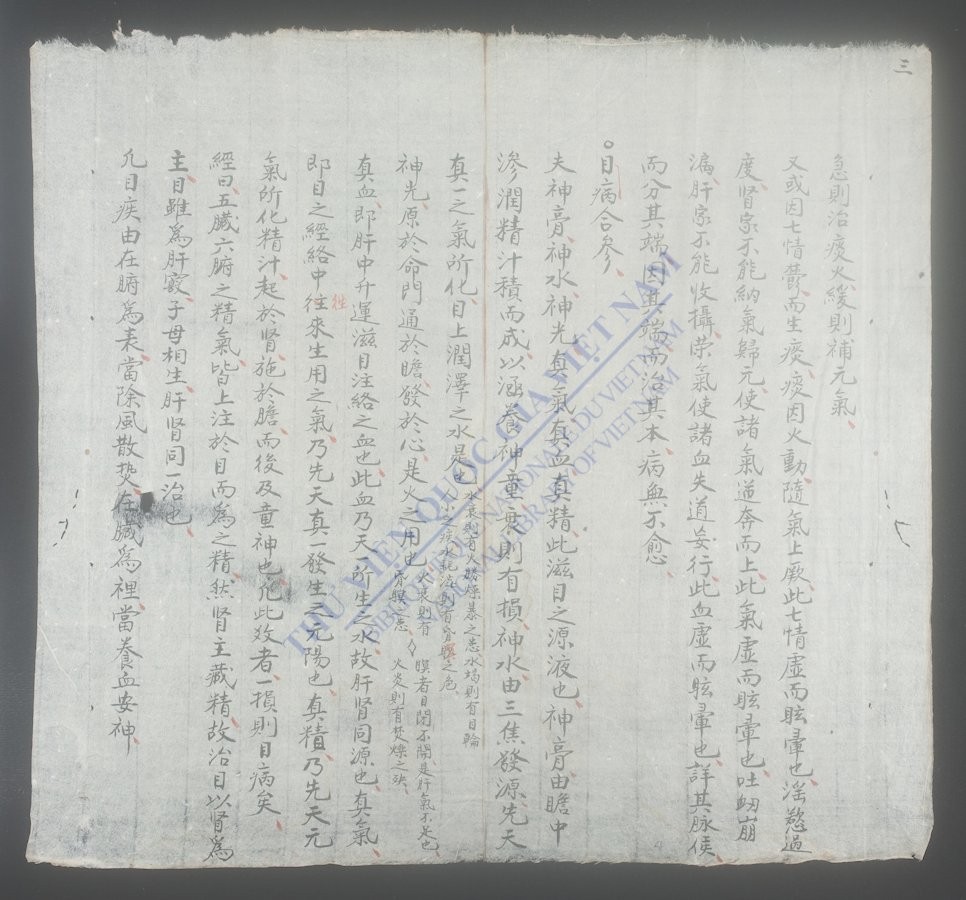 三
急則治痰火緩則補元氣
又或因七情鬱而生痰痰因火動隨氣上厥此七情虛而眩暈也淫慾過
度腎家不能納氣歸元使諸氣逆奔而上此氣虛而眩暈也吐衂崩
漏肝家不能收攝荣氣使諸血失道妄行此血虛而眩暈也詳其脉侯
而分其端因其端而治其本病無不愈
目病合參
夫神膏神水神光真氣真血真精此滋目之源液也神膏由瞻中
滲潤精汁積而成以涵養神童衰則有損神水由三焦發源先天
真一之氣所化目上潤澤之水是也水衰則有火勝燥暴之患水竭則有目輪
神光原於命門通於瞻發於心是火之用也火衰則有昏瞑之患 瞑者目閉不開是肝氣不足也
火炎則有焚燥之殃
真血即肝中升運滋目注絡之血也此血乃天一所生之水故肝腎同源也真氣
即目之經絡中往來生用之氣乃先天真一發生之元陽也真精乃先天元
徃
氣所化精汁起於腎施於膽而後及童神也凢此数者一損則目病矣
經曰五臟六腑之精氣皆上注於目而為之精然腎主藏精故治目以腎爲
主目雖爲肝竅子母相生肝腎同一治也
凢目疾由在腑爲表當除風散热在臟爲裡當養血安神
THƯ VIỆN QUỐC GIA VIỆT NAM
BIBLIOTHÈQUE NATIONALE DU VIETNAM
NATIONAL LIBRARY OF VIETNAM